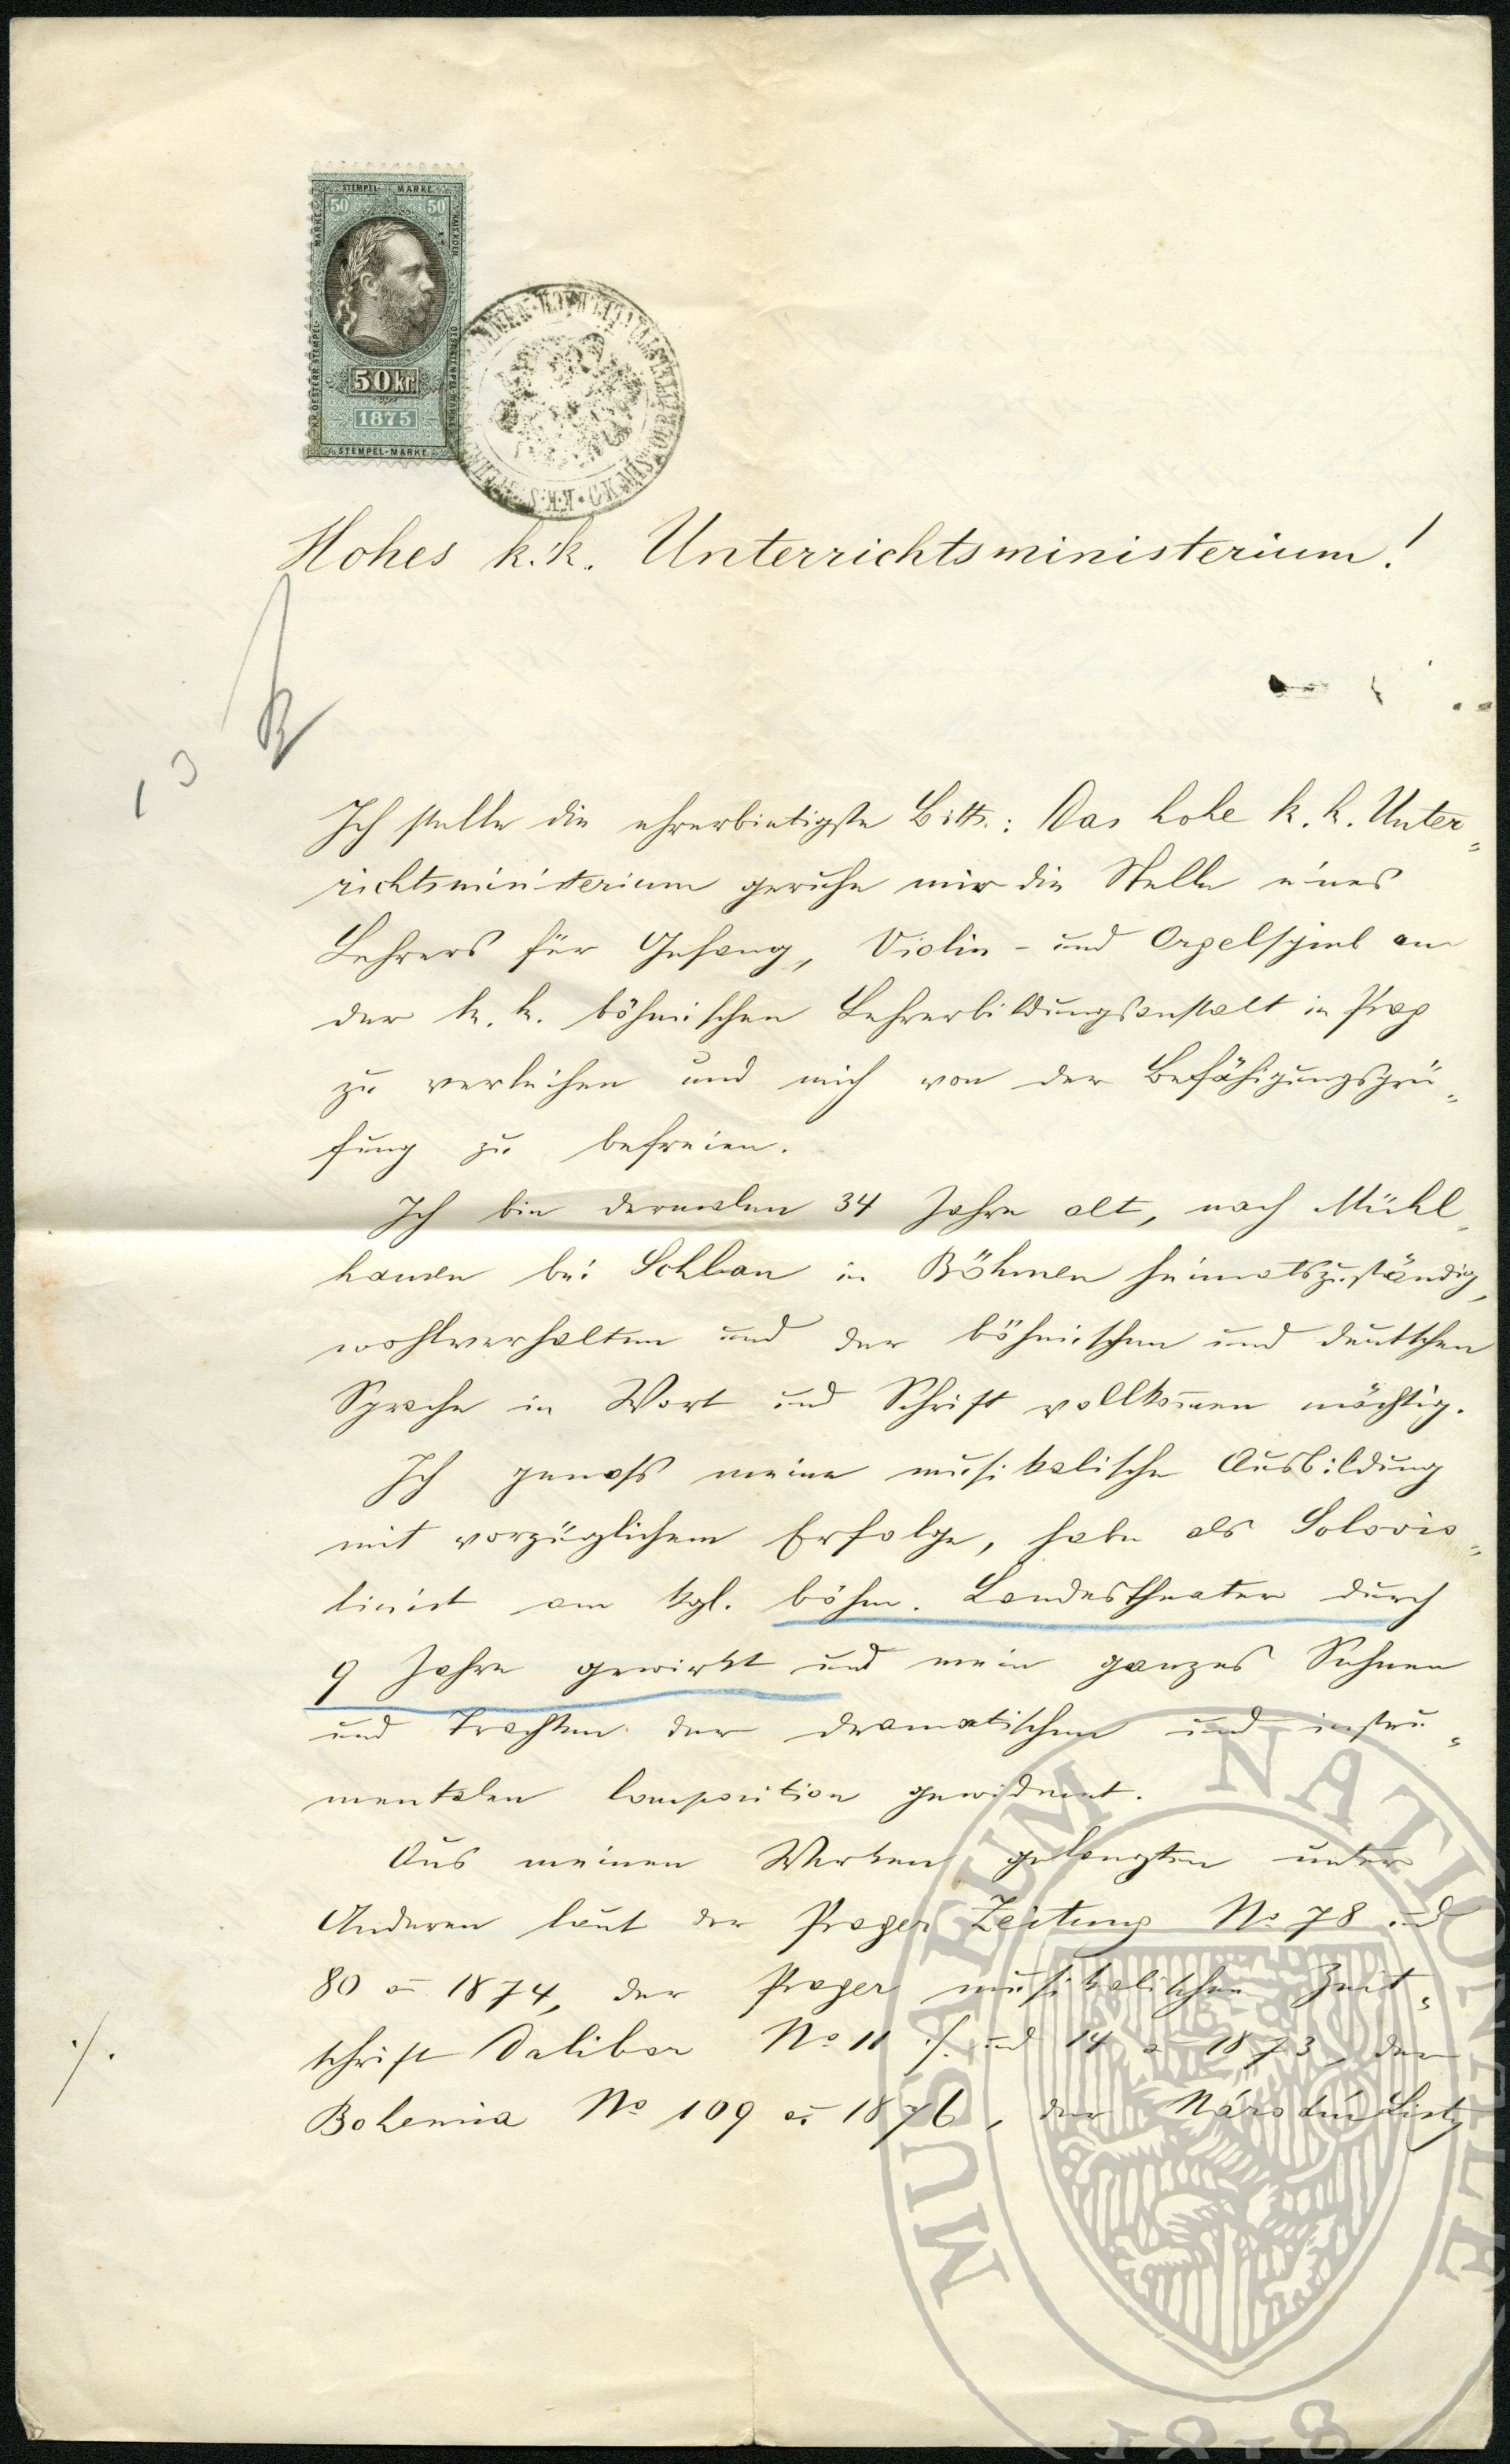 STEMPEL MARKE
50 50
50 kr
1875
STEMPEL-MARKE
Hohes k. k. Unterrichtsministerium!
Ich stelle die ehrerbietigste Bitte: Das hohe k. k. Unter„
richtsministerium geruhe mir die Stelle eines
Lehrers für Gesang, Violin- und Orgelspiel an
der k. k. böhmischen Lehrerbildungsanstalt in Prag
zu verleihen und mich von der Befähigungsprü„
fung zu befreien.
Ich bin dermalen 34 Jahre alt, nach Mühl„
hausen bei Schlan in Böhmen heimatszuständig,
wohlverhalten und der böhmischen und deutschen
Sprache in Wort und Schrift vollkom̅en mächtig.
Ich genoß meine musikalische Ausbildung
mit vorzüglichem Erfolge, habe als Solovio„
linist am kgl. böhm. Landestheater durch
9 Jahre gewirkt und mein ganzes Sehnen
und Trachten der dramatischen und instru„
mentalen Composition gewidmet.
Aus meinen Werken gelangten unter
Anderen laut der Prager Zeitung No 78 und
80 a 1874, der Prager musikalischen Zeit„
schrift Dalibor No 11 ./. und 14 a 1873, der
./.
Bohemia No 109 a 1876, der Národní Listy
MUSAEUM NATIONALE
1818